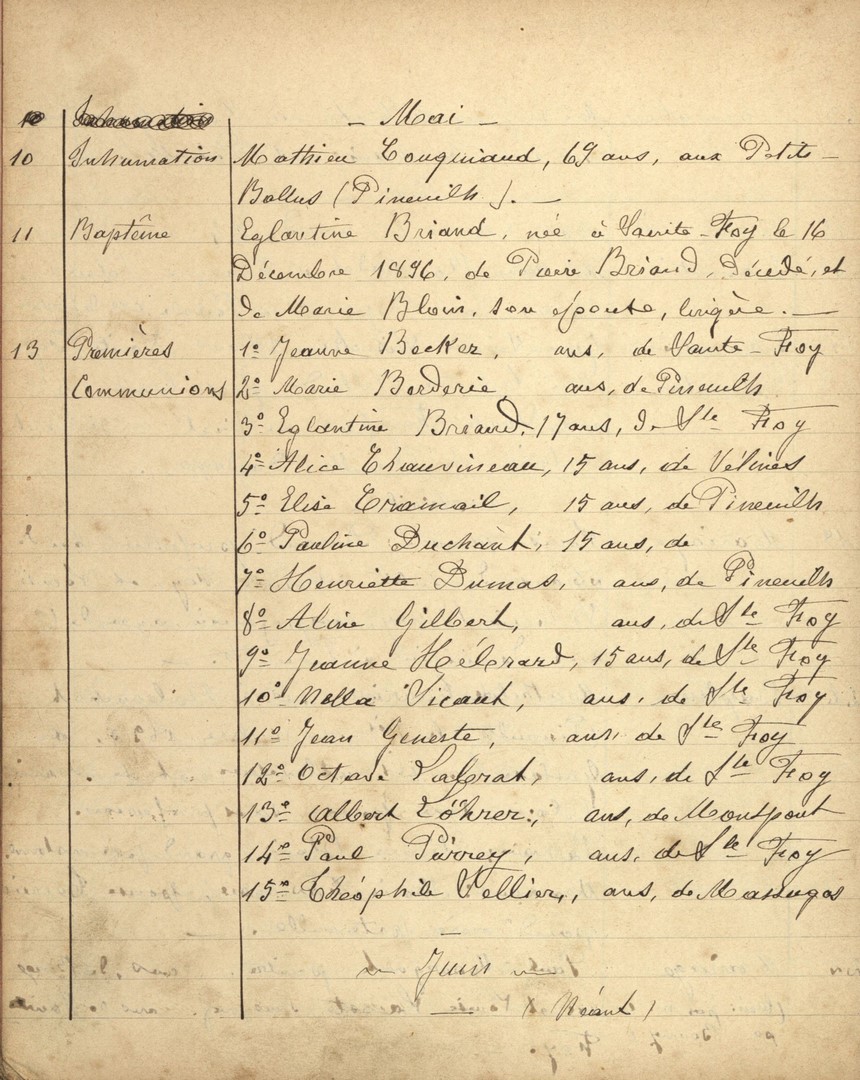 — Mai —
10 Inhumation Mathieu Couquiaud, 69 ans, aux Petits-
Ballus (Pineuilh). —
11 Baptême Eglantine Briand, née à Sainte-Foy le 16
Décembre 1896, de Pierre Briand, décédé, et
de Marie Blouin, son épouse, lingère. —
13 Premières 1º Jeanne Becker, ans, de Sainte-Foy
Communions 2º Marie Borderie ans, de Pineuilh
3º Eglantine Briand, 17 ans, de Ste Foy
4º Alice Chauvineau, 15 ans, de Vélines
5º Elise Cramail, 15 ans, de Pineuilh
6º Pauline Duchant, 15 ans, de
7º Henriette Dumas, ans, de Pineuilh
8º Aline Gilbert, ans, de Ste Foy
9º Jeanne Hébrard, 15 ans, de Ste Foy
10º Nella Sicaut, ans, de Ste Foy
11º Jean Geneste, ans, de Ste Foy
12º Octave ans, de Ste Foy
13º Albert Löhrer, ans, de Montpont
14º Paul ans, de Ste Foy
15º Théophile Tellier, ans, de Massugas
— Juin —
— (Néant)